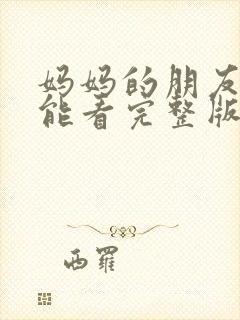 妈妈的朋友
能看完整版
西罗